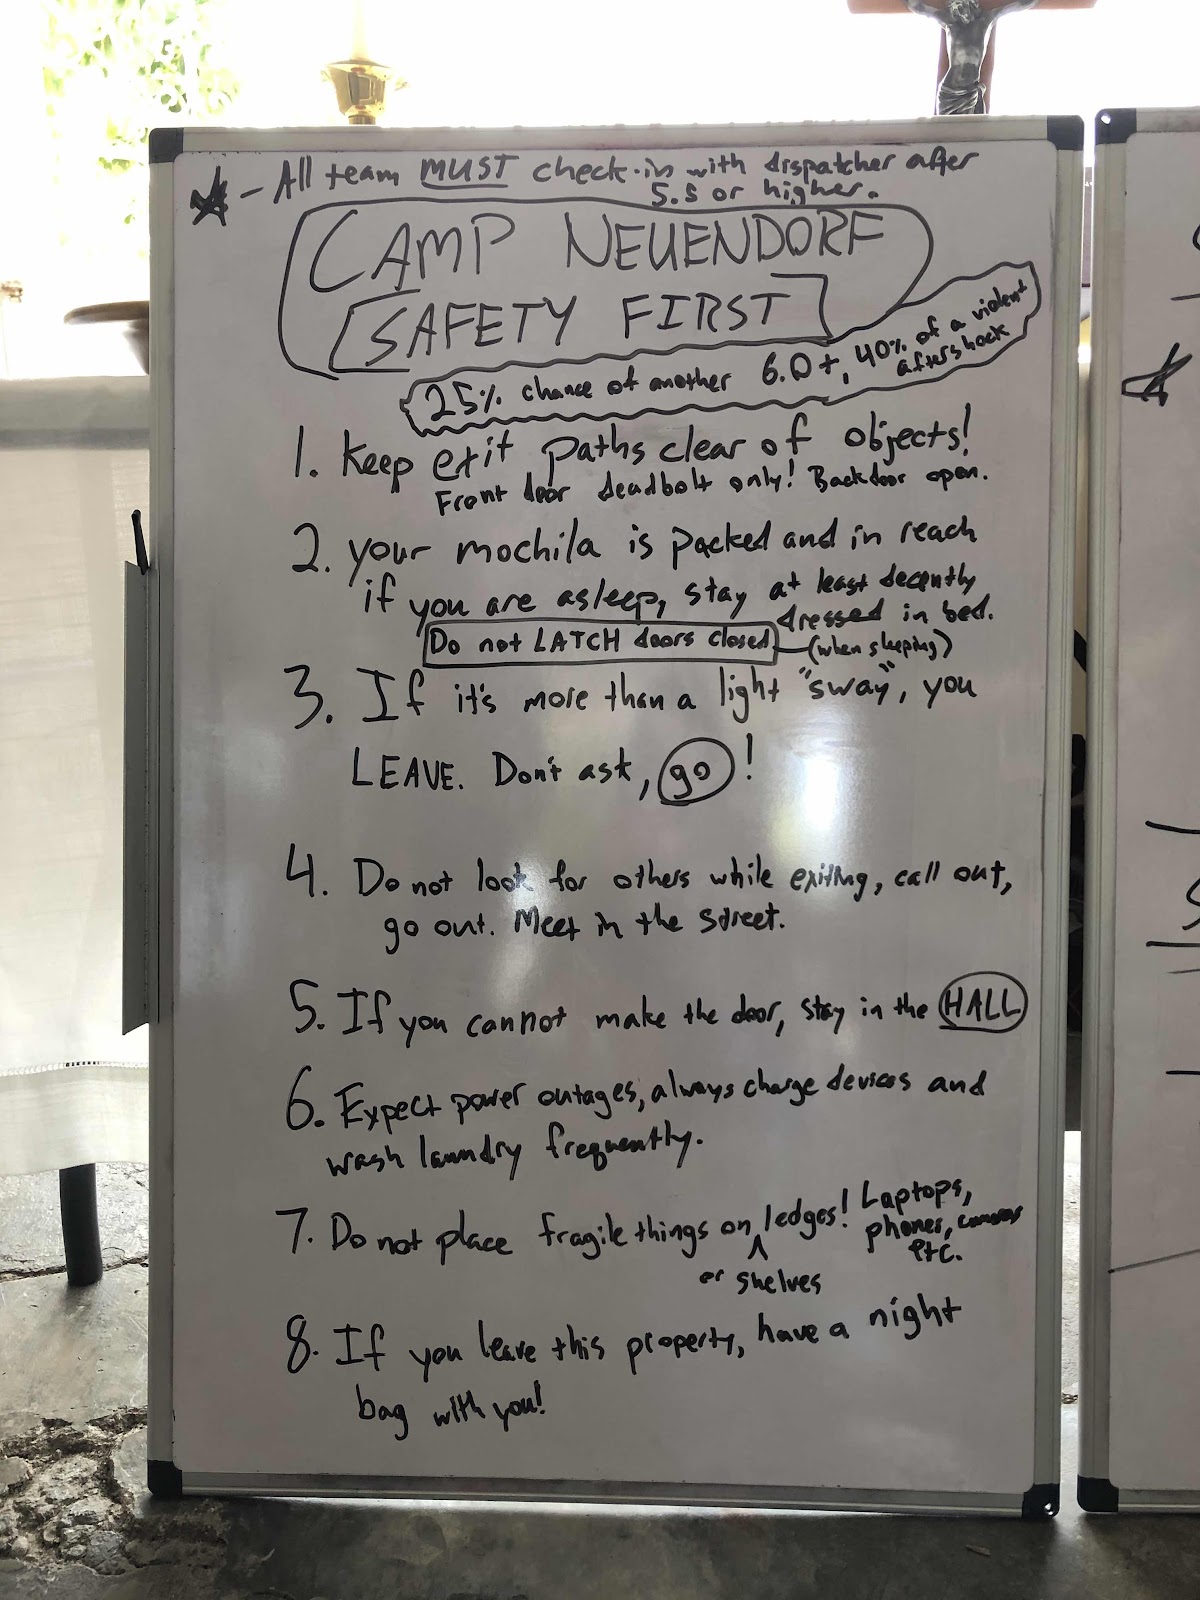 - All team MUST check-in with dispatcher after
5.5 or higher.
CAMP NEUENDORF
SAFETY FIRST
25% chance of another 6.0+, 40% of a violent
aftershock
1. Keep exit paths clear of objects!
Front door deadbolt only! Backdoor open.
2. your mochila is packed and in reach
if you are asleep, stay at least decently
dressed in bed.
Do not LATCH doors closed (when sleeping)
3. If it's more than a light "sway", you
LEAVE. Don't ask, go!
4. Do not look for others while exiting, call out,
go out. Meet in the street.
5. If you cannot make the door, stay in the HALL
6. Expect power outages, always charge devices and
wash laundry frequently.
7. Do not place fragile things on ledges! Laptops,
phones, cameras
etc.
or shelves
8. If you leave this property, have a night
bag with you!